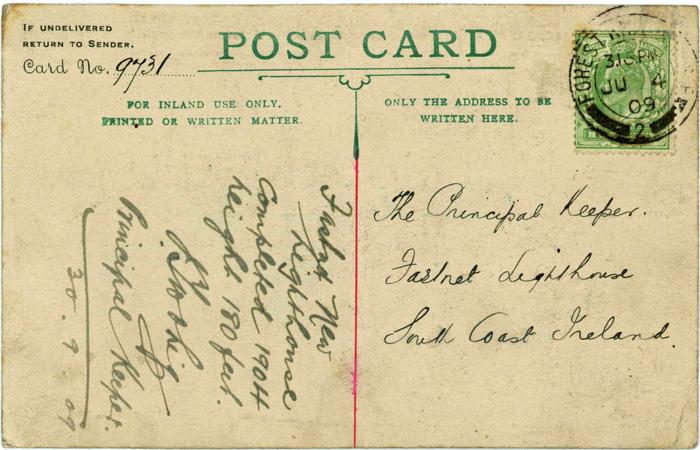 IF UNDELIVERED
RETURN TO SENDER.
Card No. 9731
POST CARD
FOR INLAND USE ONLY.
PRINTED OR WRITTEN MATTER.
ONLY THE ADDRESS TO BE
WRITTEN HERE.
FOREST
3.15PM
JU 4
09
2
The Principal Keeper.
Fastnet Lighthouse
South Coast Ireland.
Fastnet New
Lighthouse
Completed 1904
height 180 feet.
Principal Keeper.
30.9.09